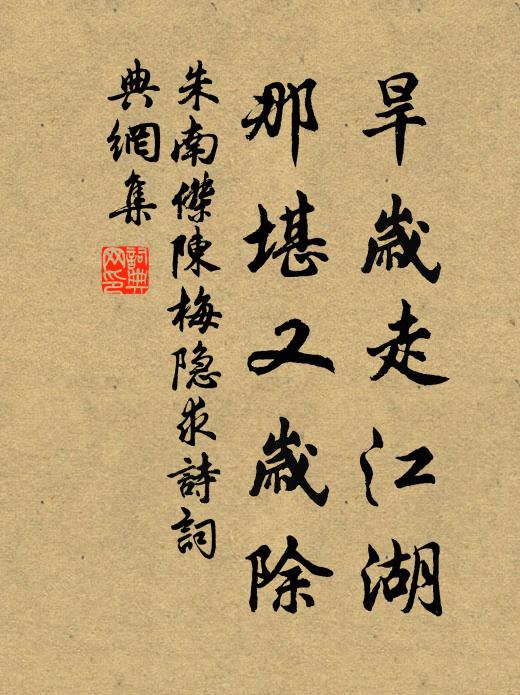 旱歲走江湖
那堪又歲除
朱南傑陳梅隐求詩詞
典網集
詞典網印